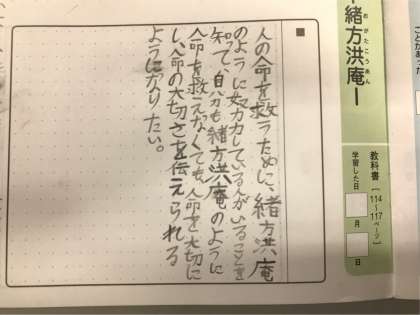 ことがあった
ー緒方洪庵ー
おがたこうあん
教科書【114〜117ページ】
学習した日 月 日
■
人の命を救うために、緒方洪庵
のように努力している人がいることを
知って、自分も緒方洪庵のように
人命を救えなくても、人命を大切に
し、人命の大切さを伝えられる
ようになりたい。